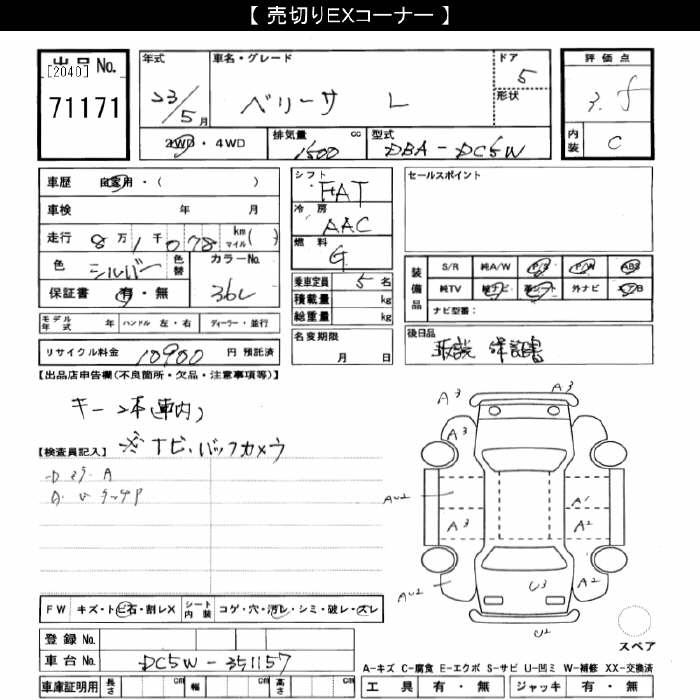 【 売切りEXコーナー 】
出品No.
[2040]
71171
年式
23/5月
車名・グレード
ベリーサ L
ドア
5
形状
評価点
3.5
内装 C
2WD・4WD
排気量 cc
1500
型式
DBA-DC5W
車歴 自家用・( )
車検 年 月
走行 8万1千078 km マイル( )
色 シルバー 色替
カラーNo.
36L
保証書 有・無
シフト
FAT
冷房
AAC
燃料
G
乗車定員 5名
積載量 kg
総重量 kg
名変期限
月 日
セールスポイント
装備品
S/R 純A/W P/S P/W ABS
純TV 純ナビ 革シート 外ナビ エアB
ナビ型番:
後日品
取説 保証書
モデル年式 年 ハンドル 左・右 ディーラー・並行
リサイクル料金 10900 円 預託済
【出品店申告欄(不良箇所・欠品・注意事項等)】
キー2本(車内)
※ナビ・バックカメラ
【検査員記入】
A3
A3
A3
AU2
A1
A3
A2
AU2
A2
U3
U2
FW キズ・トビ石・割レX
シート内装 コゲ・穴・汚レ・シミ・破レ・スレ
登録 No.
車台 No. DC5W-351157
車庫証明用 長さ cm 幅 cm 高さ cm
スペア
A-キズ C-腐食 E-エクボ S-サビ U-凹ミ W-補修 XX-交換済
工具 有・無 ジャッキ 有・無